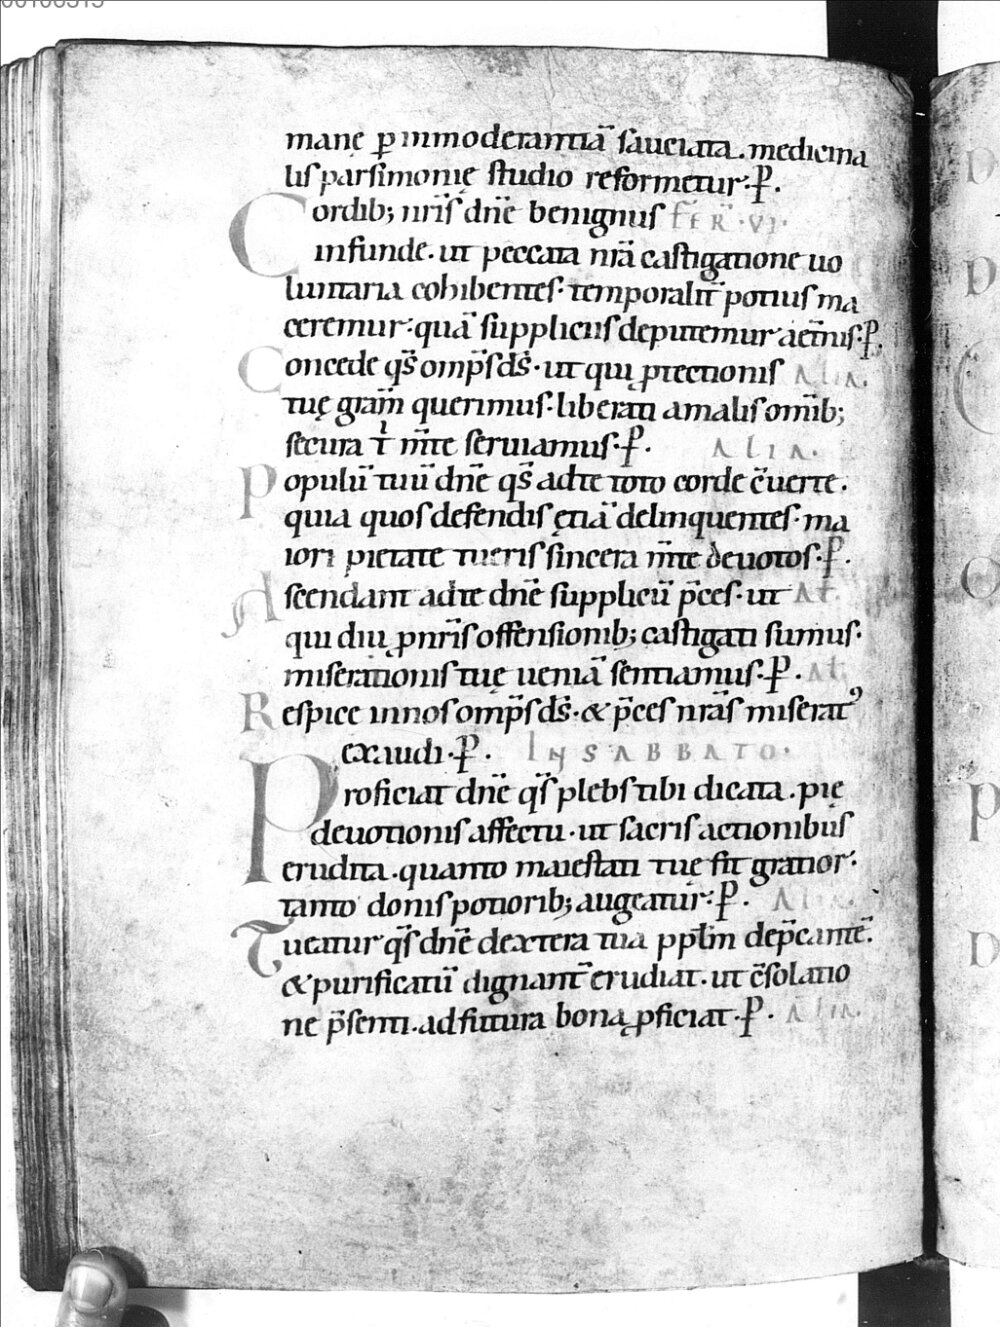 manę p̱ inmoderantiā sauciata. medicina
lis parsimonię studio reformetur. P̱.
Cordib; nr̄is dn̄e benignus FER̄. VI.
infunde. ut peccata nr̄a castigatione uo
luntaria cohibentes. temporalit̄ potius ma
ceremur. quā suppliciis deputemur aet̄nis. P̱.
Concede qs̄ omp̄s ds̄. ut qui ꝓtectionis ALIA.
tuę grām querimus. liberati amalis om̄ib;
secura t m̄te seruiamus. P̱. ALIA.
Populū tuū dn̄e qs̄ adte toto corde c̄uerte.
quia quos defendis ętiā delinquentes. ma
iori pietate tueris sincera m̄te deuotos. P̱.
Ascendant adte dn̄e supplicū p̄ces. ut AL.
qui diu ꝓnr̄is offensionib; castigati sumus.
miserationis tuę ueniā sentiamus. P̱. AL.
Respice innos omp̄s ds̄. & p̄ces nrās miserat᾽
exaudi. P̱. IN SABBATO.
Proficiat dn̄e qs̄ plebs tibi dicata. pię
deuotionis affectu. ut sacris actionibus
erudita. quanto maiestati tuę fit gratior.
tanto donis potiorib; augeatur. P̱. ALIA.
Tueatur qs̄ dn̄e dextera tua ppl̄m dep̄cantē.
& purificatū dignant̄ erudiat. ut c̄solatio
ne p̄senti. ad futura bona ꝓficiat. P̱. ALIA.